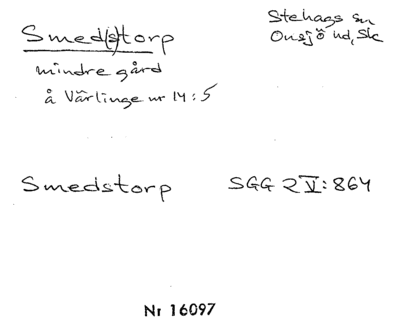 Smed(s)torp
Stehags sn
Onsjö hd, Sk
mindre gård
å Värlinge nr 14:5
Smedstorp SGG 2 V:864
Nr 16097